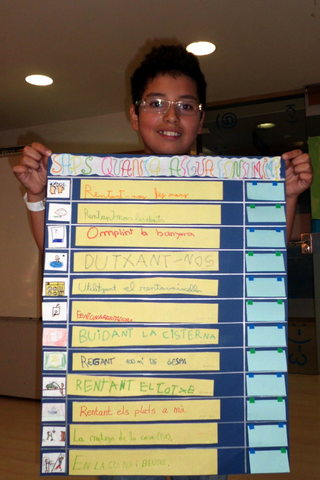 SAPS QUANTA AIGUA
Rentant-nos les mans
Rentant-nos les dents
Omplint la banyera
DUTXANT-NOS
Utilitzant el rentavaixella
BUIDANT LA CISTERNA
REGANT 100 m² DE GESPA
RENTANT EL COTXE
Rentant els plats a mà
La neteja de la casa
EN LA CUINA I BEURE.